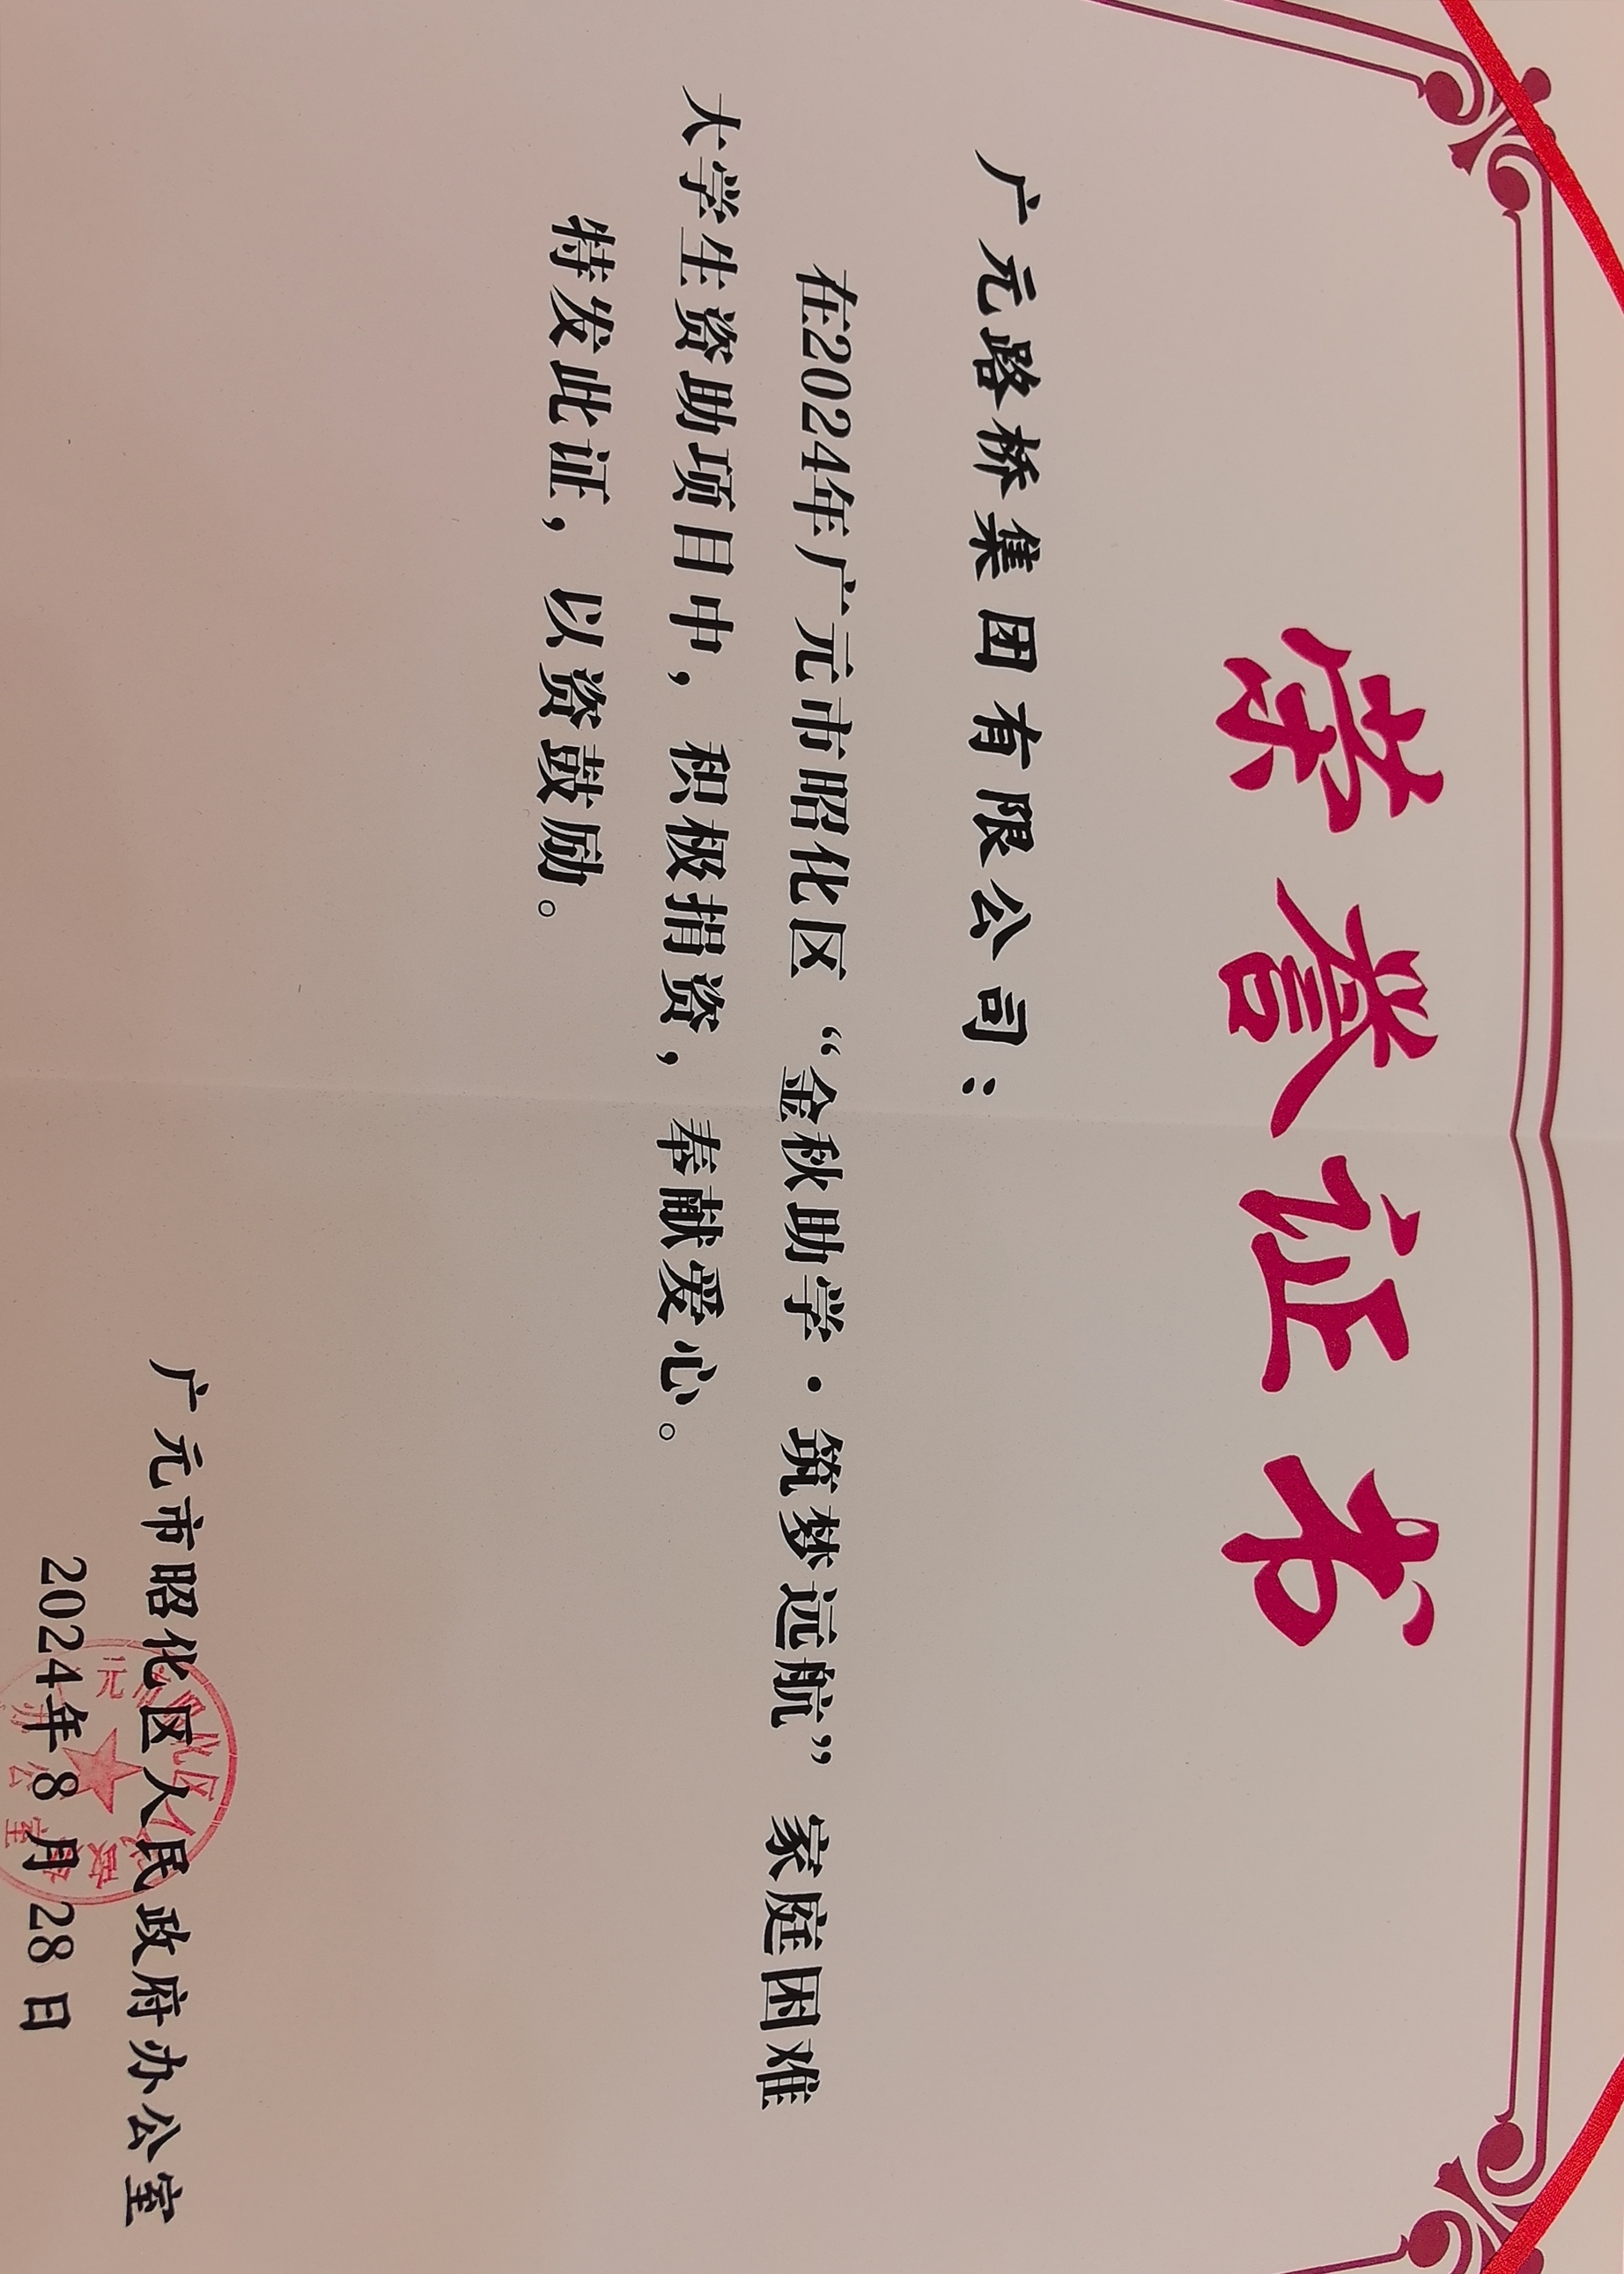 荣誉证书
广元路桥集团有限公司：
在2024年广元市昭化区“金秋助学·筑梦远航” 家庭困难
大学生资助项目中，积极捐资，奉献爱心。
特发此证，以资鼓励。
广元市昭化区人民政府办公室
2024年8月28日